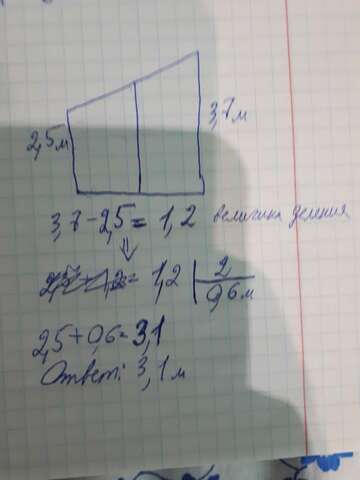 2,5м
3,7м
3,7-2,5=1,2 величина деления
= 1,2 | 2
0,6м
2,5+0,6=3,1
Ответ: 3,1м